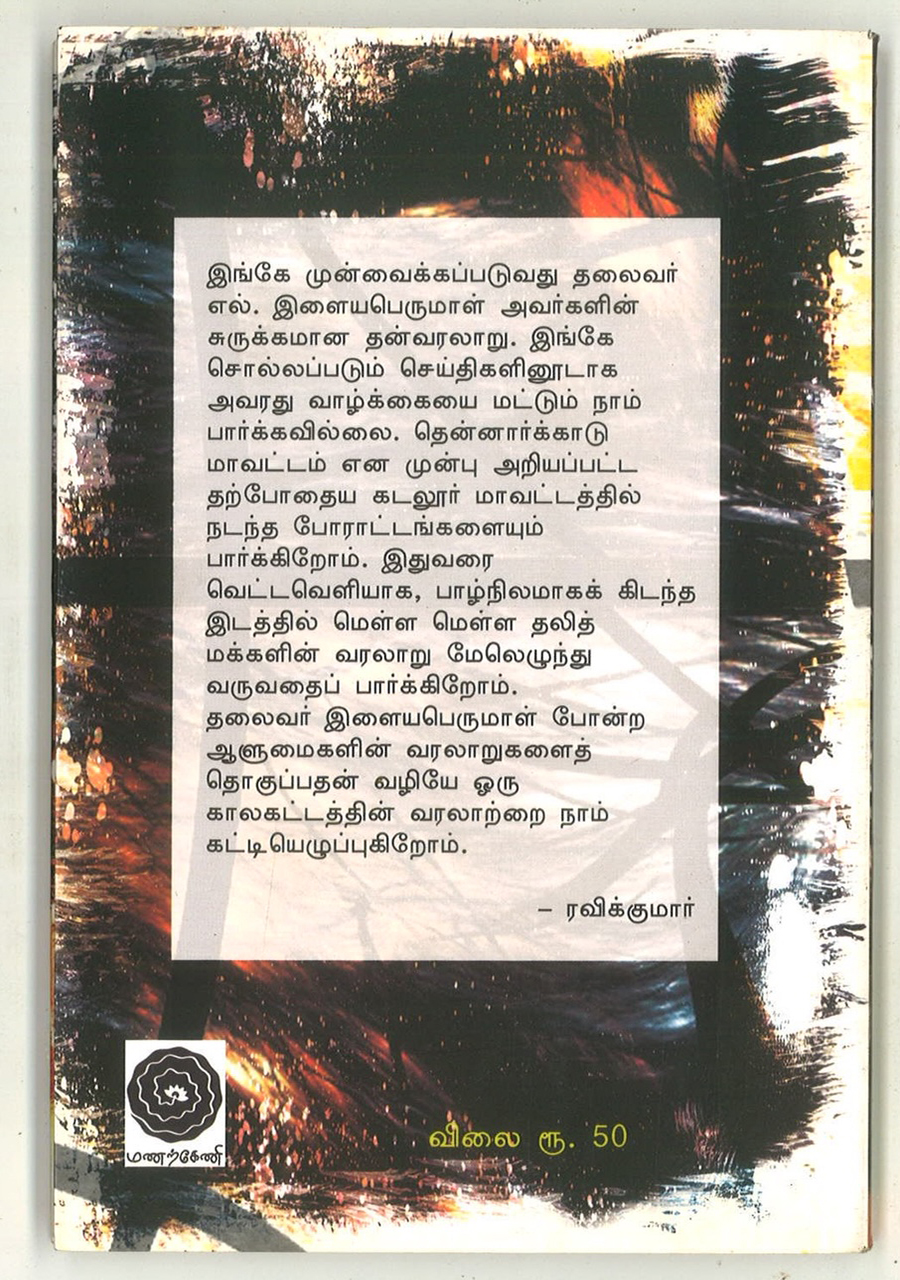 இங்கே முன்வைக்கப்படுவது தலைவர்
எல். இளையபெருமாள் அவர்களின்
சுருக்கமான தன்வரலாறு. இங்கே
சொல்லப்படும் செய்திகளினூடாக
அவரது வாழ்க்கையை மட்டும் நாம்
பார்க்கவில்லை. தென்னார்க்காடு
மாவட்டம் என முன்பு அறியப்பட்ட
தற்போதைய கடலூர் மாவட்டத்தில்
நடந்த போராட்டங்களையும்
பார்க்கிறோம். இதுவரை
வெட்டவெளியாக, பாழ்நிலமாகக் கிடந்த
இடத்தில் மெள்ள மெள்ள தலித்
மக்களின் வரலாறு மேலெழுந்து
வருவதைப் பார்க்கிறோம்.
தலைவர் இளையபெருமாள் போன்ற
ஆளுமைகளின் வரலாறுகளைத்
தொகுப்பதன் வழியே ஒரு
காலகட்டத்தின் வரலாற்றை நாம்
கட்டியெழுப்புகிறோம்.
– ரவிக்குமார்
மணற்கேணி
விலை ரூ. 50